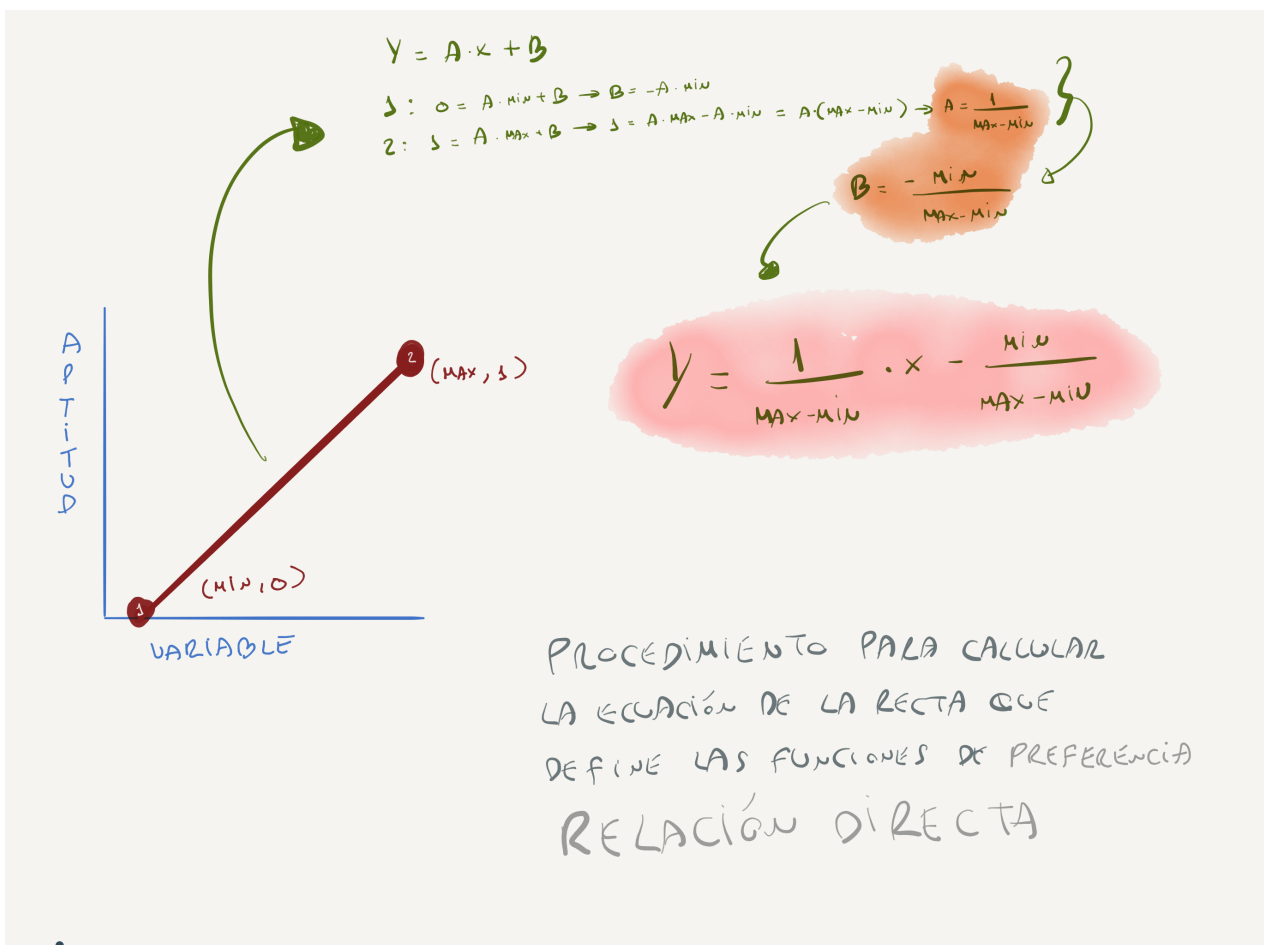 Y = A·x + B
1: 0 = A·MIN + B → B = -A·MIN
2: 1 = A·MAX + B → 1 = A·MAX - A·MIN = A·(MAX-MIN) → A = 1/(MAX-MIN)
B = - MIN/(MAX-MIN)
y = 1/(MAX-MIN) · x - MIN/(MAX-MIN)
APTITUD
2 (MAX, 1)
1 (MIN, 0)
VARIABLE
PROCEDIMIENTO PARA CALCULAR
LA ECUACIÓN DE LA RECTA QUE
DEFINE LAS FUNCIONES DE PREFERENCIA
RELACIÓN DIRECTA